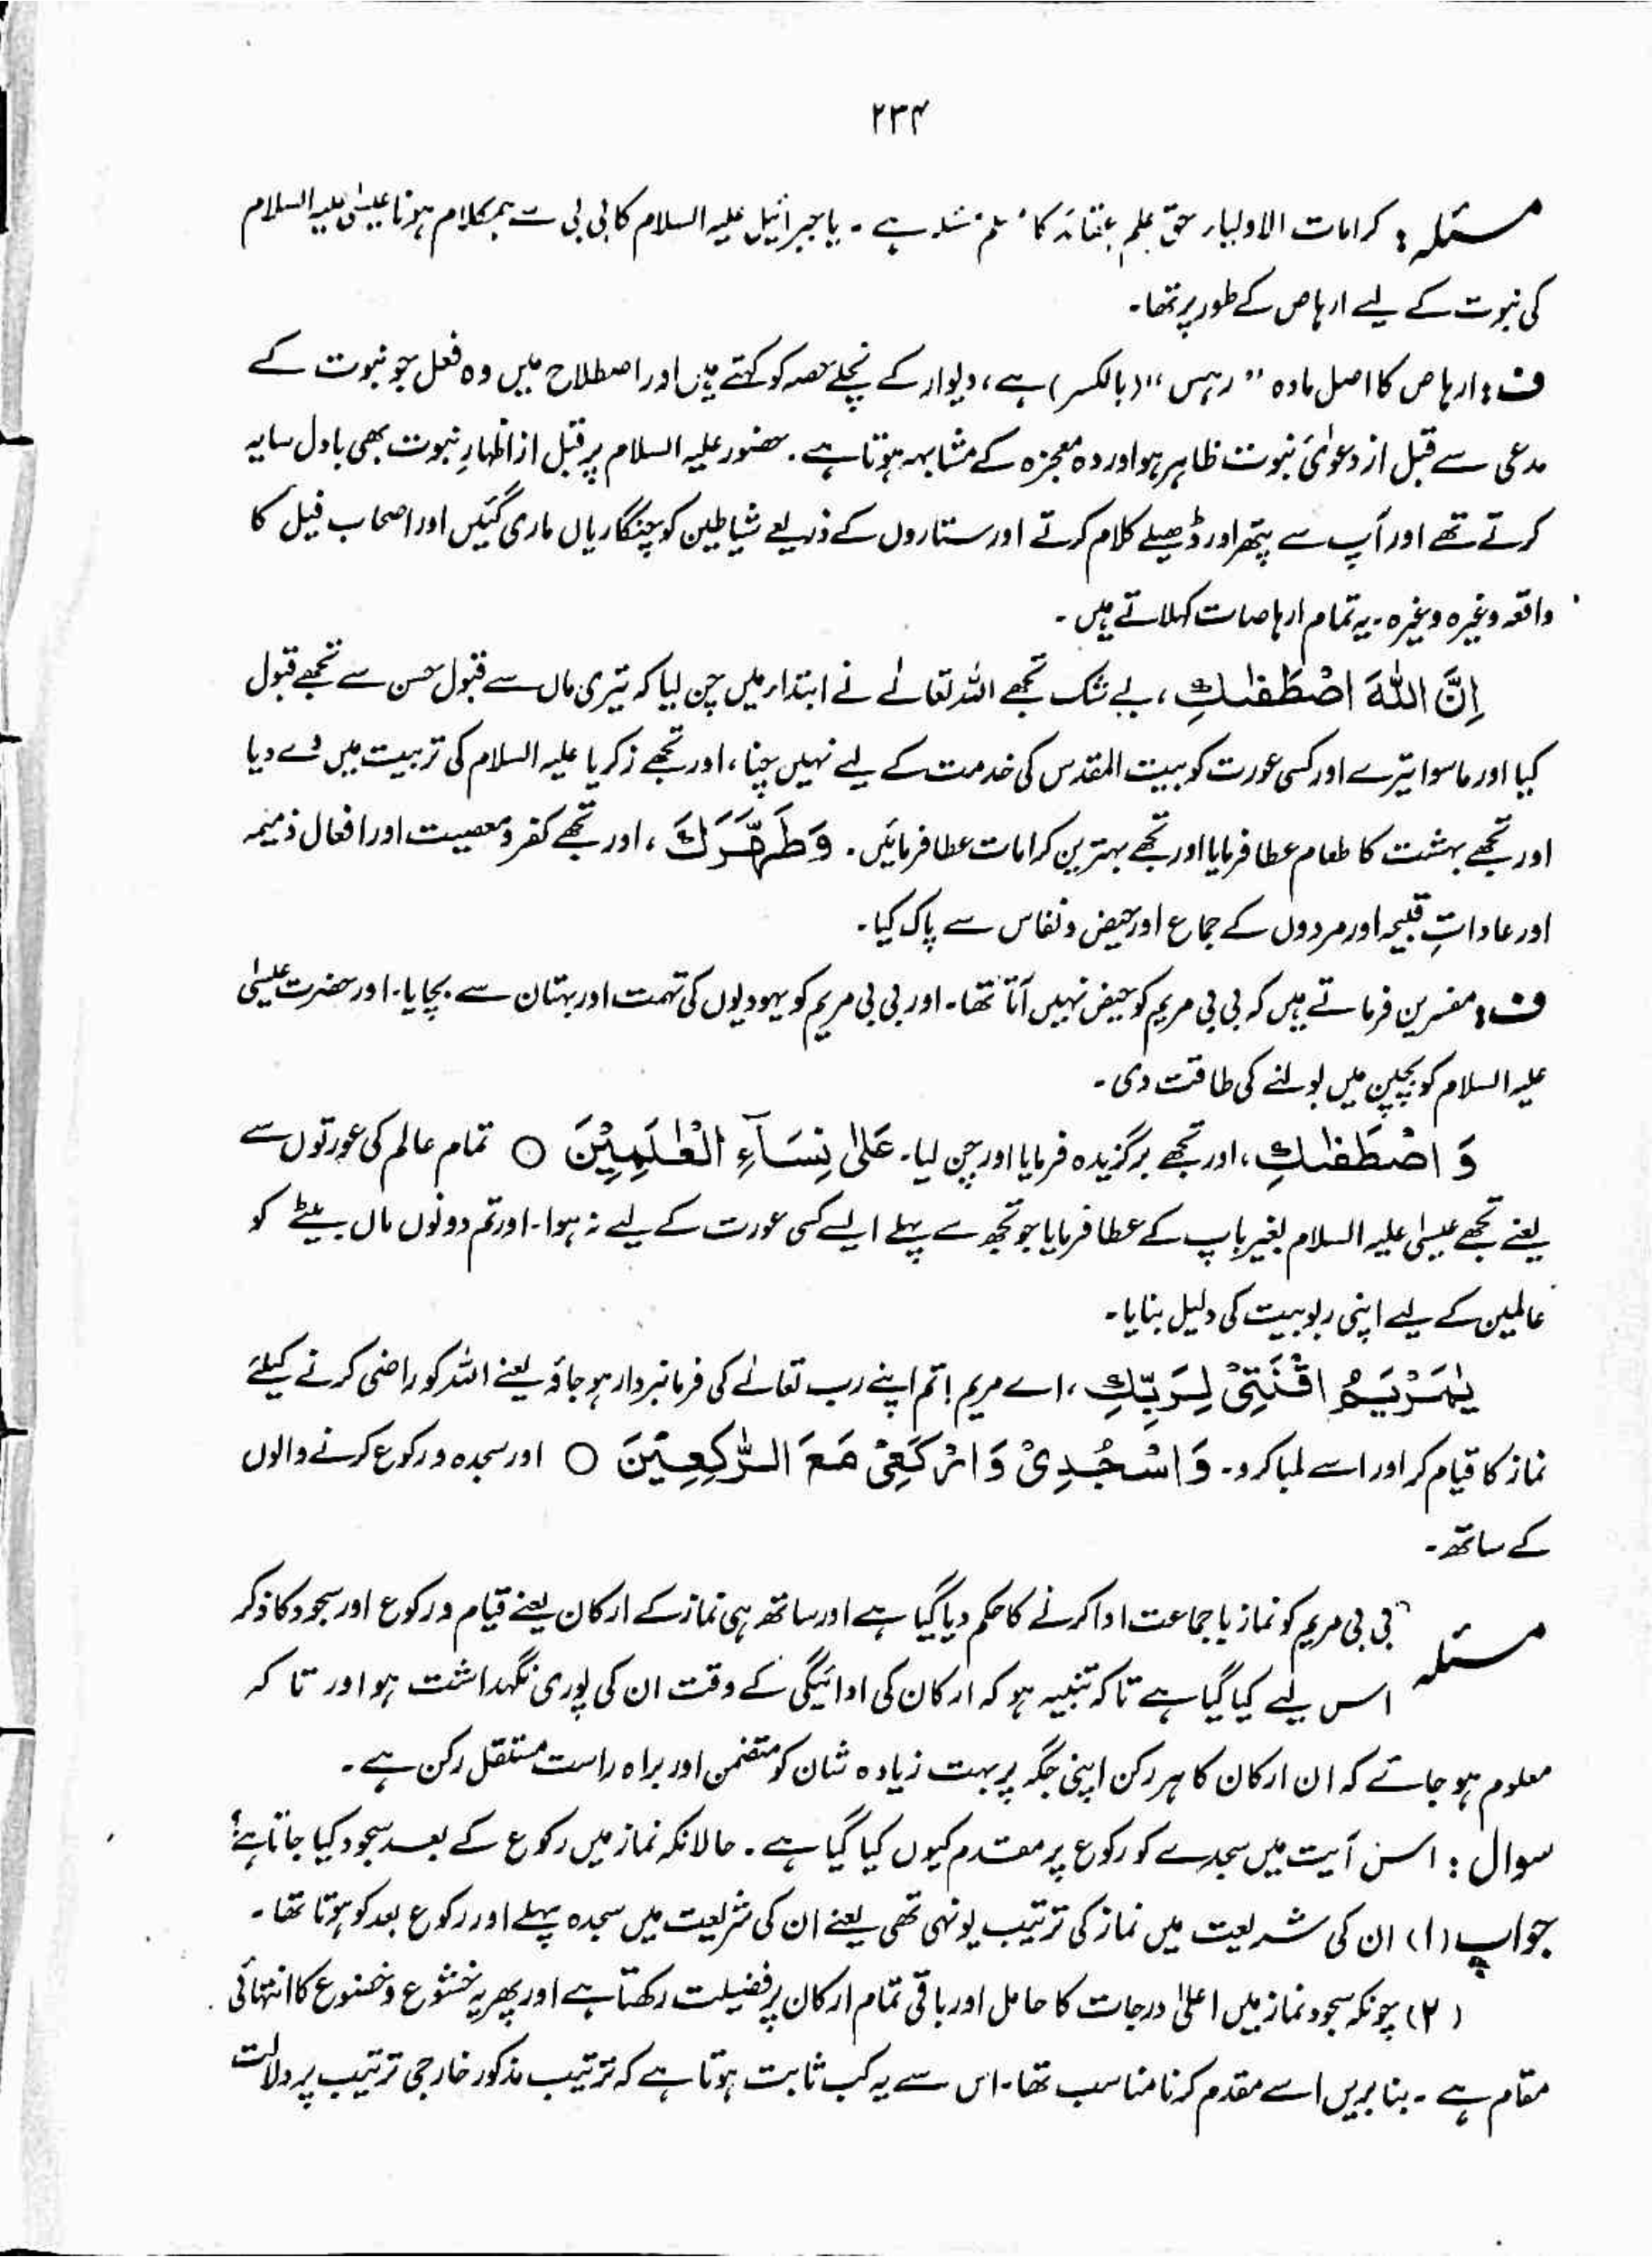 ۲۳۴
مسئلہ : کرامات الاولیاء حق علم عقائد کا مسلم مسئلہ ہے ۔ یا جبرائیل علیہ السلام کا بی بی سے ہمکلام ہونا عیسیٰ علیہ السلام
کی نبوت کے لیے ارہاص کے طور پر تھا۔
ف : ارہاص کا اصل مادہ ”رہس“ (بالکسر) ہے ، دیوار کے نچلے حصہ کو کہتے ہیں اور اصطلاح میں وہ فعل جو نبوت کے
مدعی سے قبل از دعوئ نبوت ظاہر ہو اور وہ معجزہ کے مشابہہ ہوتا ہے ۔ حضور علیہ السلام پر قبل از اظہارِ نبوت بھی بادل سایہ
کرتے تھے اور آپ سے پتھر اور ڈھیلے کلام کرتے اور ستاروں کے ذریعے شیاطین کو چنگاریاں ماری گئیں اور اصحاب فیل کا
واقعہ وغیرہ وغیرہ ۔ یہ تمام ارہاصات کہلاتے ہیں ۔
اِنَّ اللّٰهَ اصْطَفٰىكِ ، بے شک تجھے اللہ تعالےٰ نے ابتداء میں چن لیا کہ تیری ماں سے قبول حسن سے تجھے قبول
کیا اور ماسوا تیرے اور کسی عورت کو بیت المقدس کی خدمت کے لیے نہیں چنا ، اور تجھے زکریا علیہ السلام کی تربیت میں دے دیا
اور تجھے بہشت کا طعام عطا فرمایا اور تجھے بہترین کرامات عطا فرمائیں ۔ وَطَهَّرَكَ ، اور تجھے کفر و معصیت اور افعال ذمیمہ
اور عاداتِ قبیحہ اور مردوں کے جماع اور حیض و نفاس سے پاک کیا ۔
ف : مفسرین فرماتے ہیں کہ بی بی مریم کو حیض نہیں آتا تھا ۔ اور بی بی مریم کو یہودیوں کی تہمت اور بہتان سے بچایا ۔ اور حضرت عیسیٰ
علیہ السلام کو بچپن میں بولنے کی طاقت دی ۔
وَ اصْطَفٰىكِ ، اور تجھے برگزیدہ فرمایا اور چن لیا۔ عَلٰى نِسَآءِ الْعٰلَمِيْنَ ○ تمام عالم کی عورتوں سے
یعنے تجھے عیسیٰ علیہ السلام بغیر باپ کے عطا فرمایا جو تجھ سے پہلے ایسے کسی عورت کے لیے نہ ہوا ۔ اور تم دونوں ماں بیٹے کو
عالمین کے لیے اپنی ربوبیت کی دلیل بنایا۔
يٰمَرْيَمُ اقْنَتِيْ لِرَبِّكِ ، اے مریم ! تم اپنے رب تعالےٰ کی فرمانبردار ہو جاؤ یعنے اللہ کو راضی کرنے کیلئے
نماز کا قیام کر اور اسے لمبا کرو۔ وَاسْجُدِيْ وَارْكَعِيْ مَعَ الرّٰكِعِيْنَ ○ اور سجدہ و رکوع کرنے والوں
کے ساتھ ۔
مسئلہ بی بی مریم کو نماز با جماعت ادا کرنے کا حکم دیا گیا ہے اور ساتھ ہی نماز کے ارکان یعنے قیام و رکوع اور سجود کا ذکر
اس لیے کیا گیا ہے تا کہ تنبیہ ہو کہ ارکان کی ادائیگی کے وقت ان کی پوری نگہداشت ہو اور تا کہ
معلوم ہو جائے کہ ان ارکان کا ہر رکن اپنی جگہ پر بہت زیادہ شان کو متضمن اور براہ راست مستقل رکن ہے ۔
سوال : اس آیت میں سجدے کو رکوع پر مقدم کیوں کیا گیا ہے ۔ حالانکہ نماز میں رکوع کے بعد سجود کیا جاتا ہے؟
جواب (۱) ان کی شریعت میں نماز کی ترتیب یونہی تھی یعنے ان کی شریعت میں سجدہ پہلے اور رکوع بعد کو ہوتا تھا ۔
(۲) چونکہ سجود نماز میں اعلیٰ درجات کا حامل اور باقی تمام ارکان پر فضیلت رکھتا ہے اور پھر یہ خشوع و خضوع کا انتہائی
مقام ہے ۔ بنا بریں اسے مقدم کرنا مناسب تھا ۔ اس سے یہ کب ثابت ہوتا ہے کہ ترتیب مذکور خارجی ترتیب پر دلالت